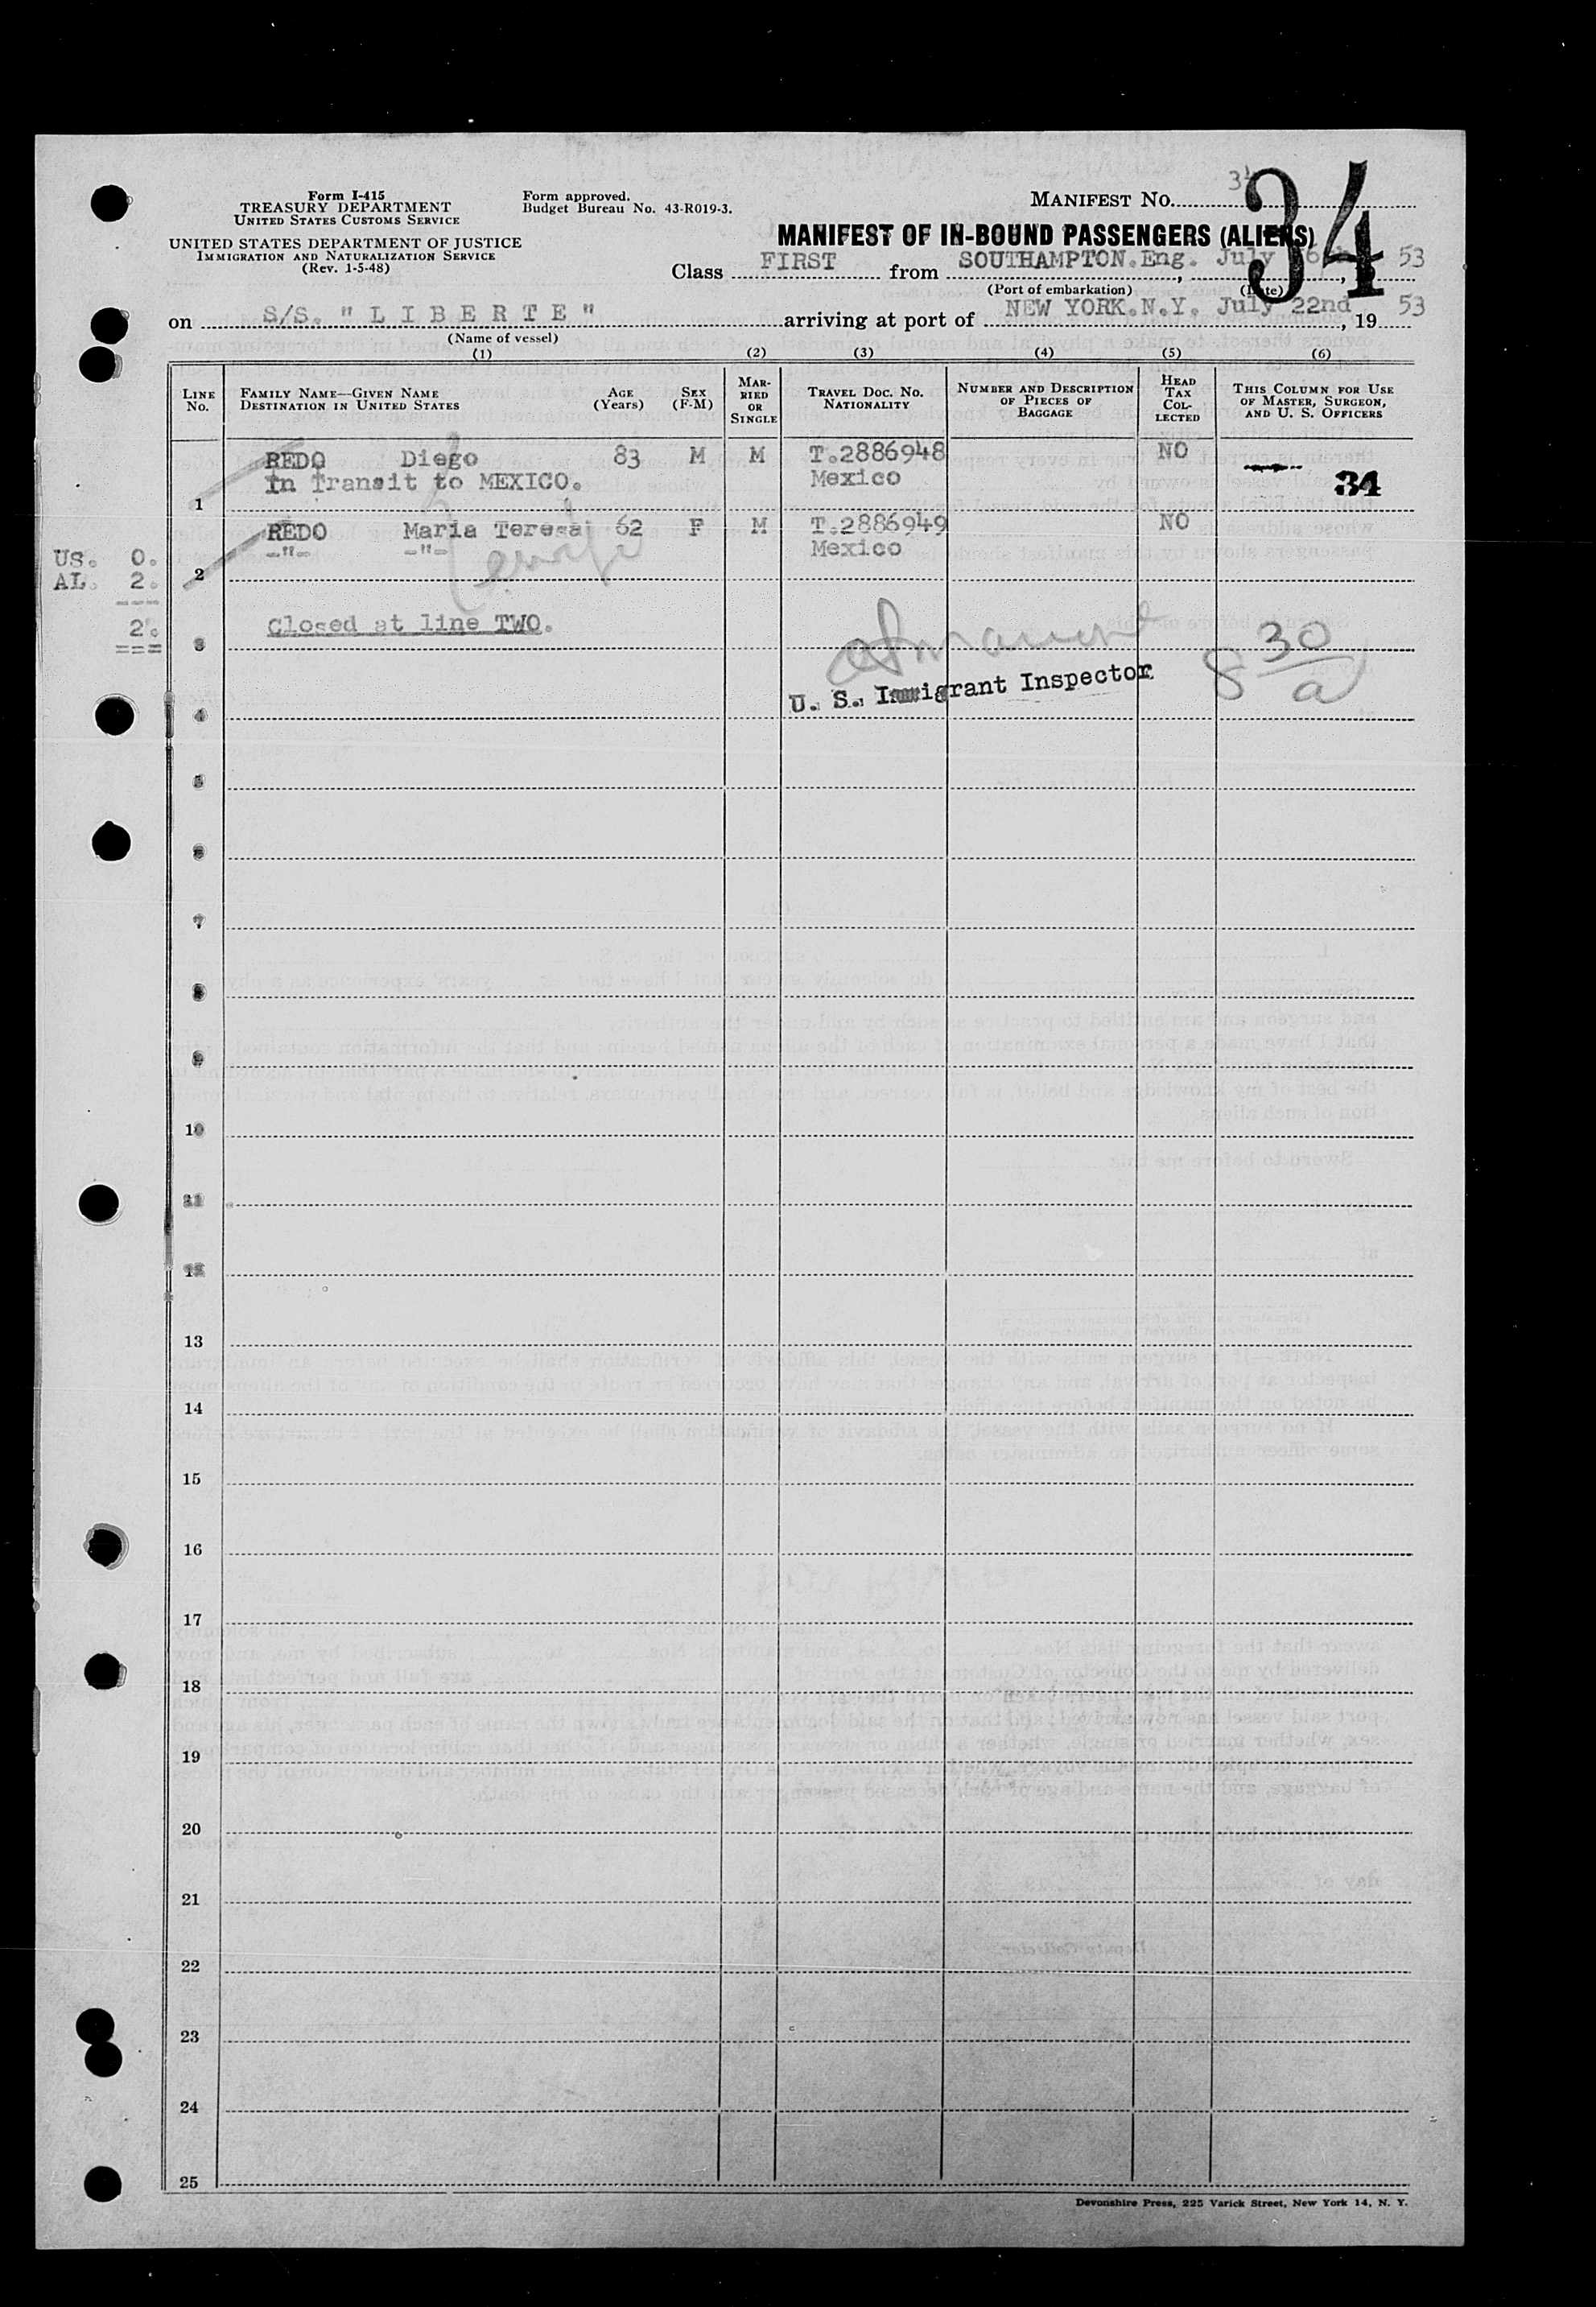 Form I-415
TREASURY DEPARTMENT
UNITED STATES CUSTOMS SERVICE
UNITED STATES DEPARTMENT OF JUSTICE
IMMIGRATION AND NATURALIZATION SERVICE
(Rev. 1-5-48)
Form approved.
Budget Bureau No. 43-R019-3.
34
MANIFEST NO.
34
MANIFEST OF IN-BOUND PASSENGERS (ALIENS)
Class FIRST from SOUTHAMPTON.Eng. July , 53
(Port of embarkation) (Date)
on S/S. " L I B E R T E " arriving at port of NEW YORK.N.Y. July 22nd , 19 53
(Name of vessel)
(1) (2) (3) (4) (5) (6)
LINE No. FAMILY NAME—GIVEN NAME DESTINATION IN UNITED STATES AGE (Years) SEX (F-M) MARRIED OR SINGLE TRAVEL DOC. NO. NATIONALITY NUMBER AND DESCRIPTION OF PIECES OF BAGGAGE HEAD TAX COLLECTED THIS COLUMN FOR USE OF MASTER, SURGEON, AND U. S. OFFICERS
REDO Diego 83 M M T.2886948 NO
In Transit to MEXICO. Mexico 34
1
REDO Maria Teresa 62 F M T.2886949 NO
-"- -"- Mexico
wife
2
US. 0.
AL. 2.
----
2.
===
Closed at line TWO.
3
8 30/a
U. S. Immigrant Inspector
4
5
6
7
8
9
10
11
12
13
14
15
16
17
18
19
20
21
22
23
24
25
Devonshire Press, 225 Varick Street, New York 14, N. Y.